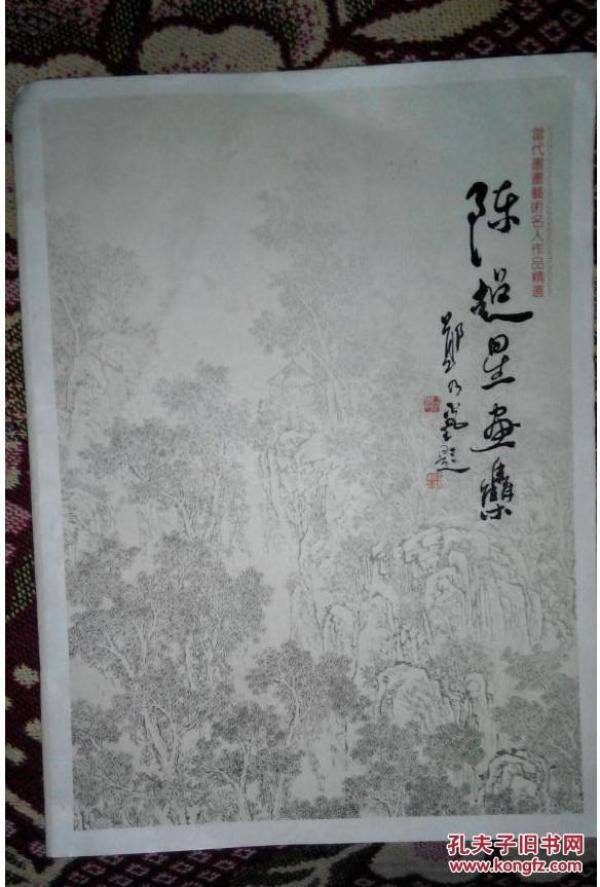 當代書畫藝術名人作品精選
陈超星画集
郑乃珖题
孔夫子旧书网
www.kongfz.com